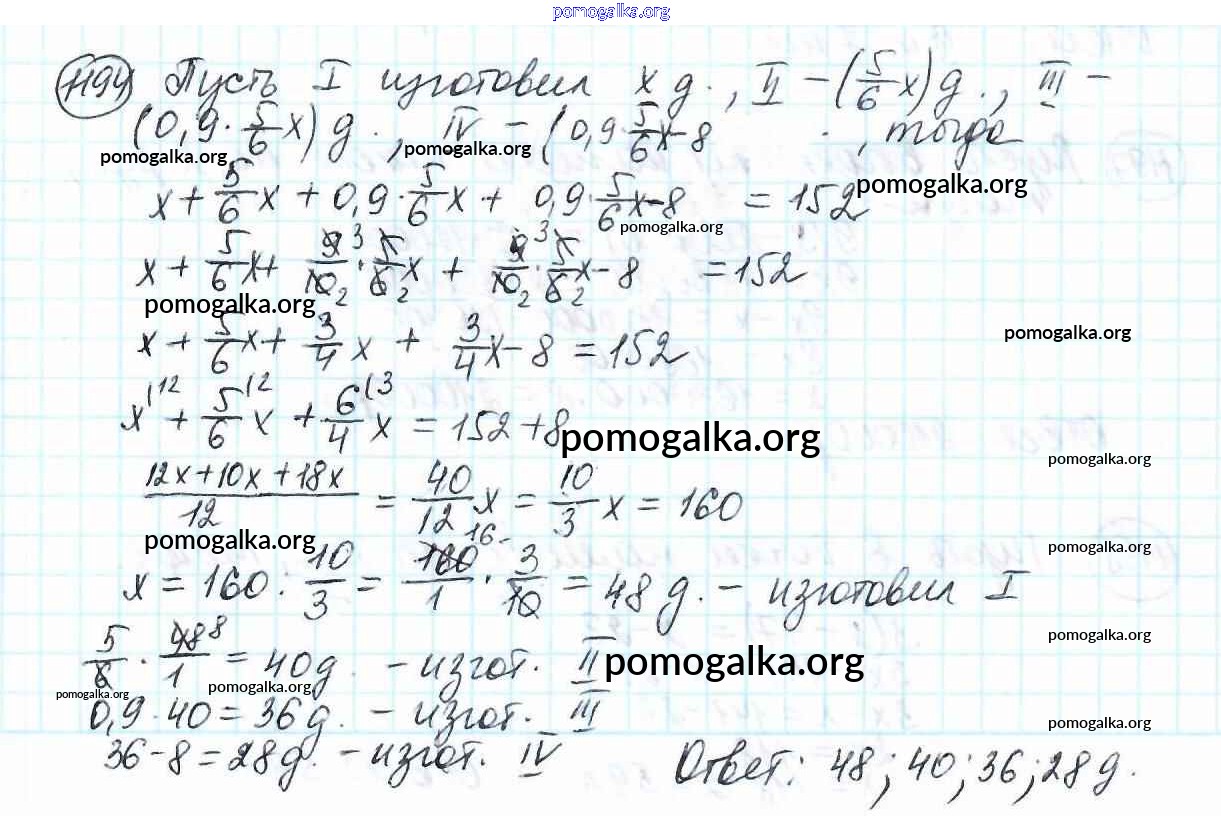 pomogalka.org
1194 Пусть I изготовил x д., II – (5/6 x) д., III –
(0,9 · 5/6 x) д., IV – (0,9 · 5/6 x – 8 , тогда
pomogalka.org pomogalka.org
x + 5/6 x + 0,9 · 5/6 x + 0,9 · 5/6 x – 8 = 152
pomogalka.org
pomogalka.org
x + 5/6 x + 9/10 · 5/6 x + 9/10 · 5/6 x – 8 = 152
3 2 2 3 2 2
pomogalka.org
pomogalka.org
x + 5/6 x + 3/4 x + 3/4 x – 8 = 152
x (12 + 5/6 (2 x + 6/4 (3 x = 152 + 8
pomogalka.org
pomogalka.org
(12x + 10x + 18x)/12 = 40/12 x = 10/3 x = 160
pomogalka.org
pomogalka.org
x = 160 : 10/3 = 160/1 · 3/10 = 48 д. – изготовил I
16
pomogalka.org
5/6 · 48/1 = 40 д. – изгот. II
8
pomogalka.org
pomogalka.org pomogalka.org
0,9 · 40 = 36 д. – изгот. III
pomogalka.org
36 – 8 = 28 д. – изгот. IV Ответ: 48; 40; 36; 28 д.